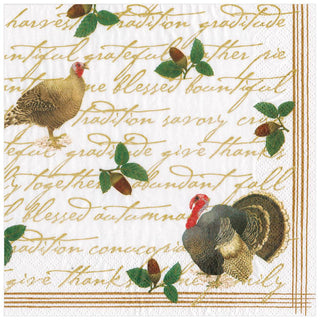 harvest tradition gratitude
untiful grateful ther pie
me blessed bountiful
tradition savory cra
tiful gratitude give thank
y together abundant full
l blessed autumn
adition cornucopia
give thank family